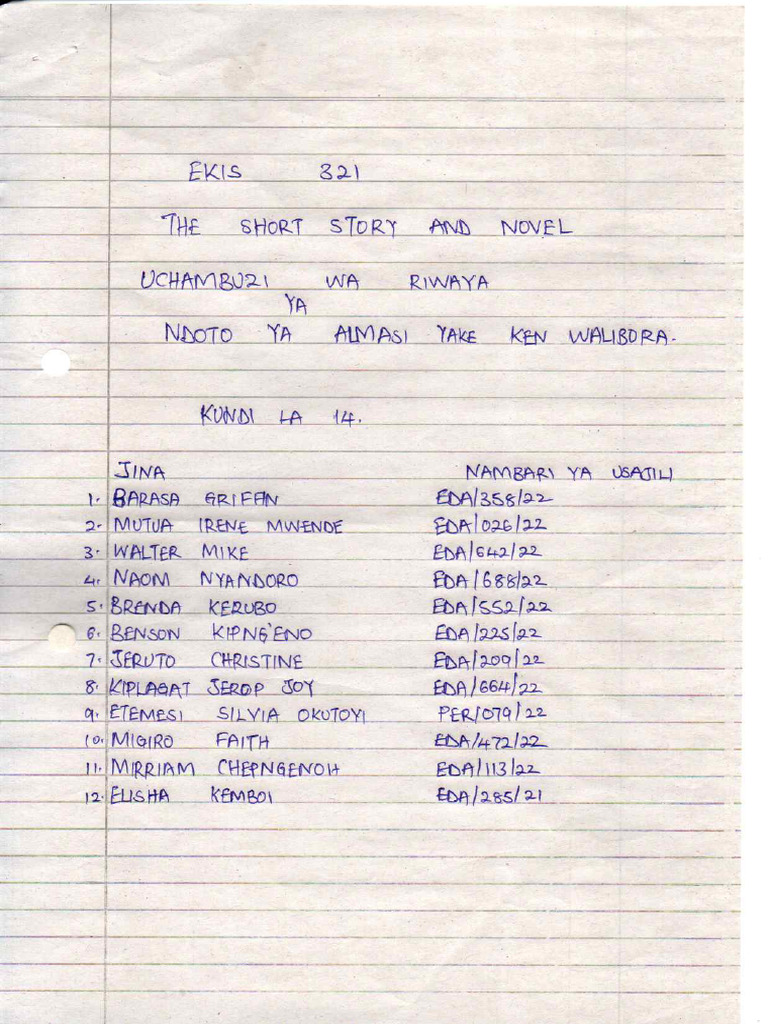 EKIS 321
THE SHORT STORY AND NOVEL
UCHAMBUZI WA RIWAYA
YA
NDOTO YA ALMASI YAKE KEN WALIBORA.
KUNDI LA 14.
JINA NAMBARI YA USAJILI
1. BARASA GRIFFIN EDA/358/22
2. MUTUA IRENE MWENDE EDA/026/22
3. WALTER MIKE EDA/642/22
4. NAOM NYANDORO EDA/688/22
5. BRENDA KERUBO EDA/552/22
6. BENSON KIPNG'ENO EDA/225/22
7. JERUTO CHRISTINE EDA/209/22
8. KIPLAGAT JEROP JOY EDA/664/22
9. ETEMESI SILVIA OKUTOYI PER/079/22
10. MIGIRO FAITH EDA/472/22
11. MIRRIAM CHEPNGENOH EDA/113/22
12. ELISHA KEMBOI EDA/285/21